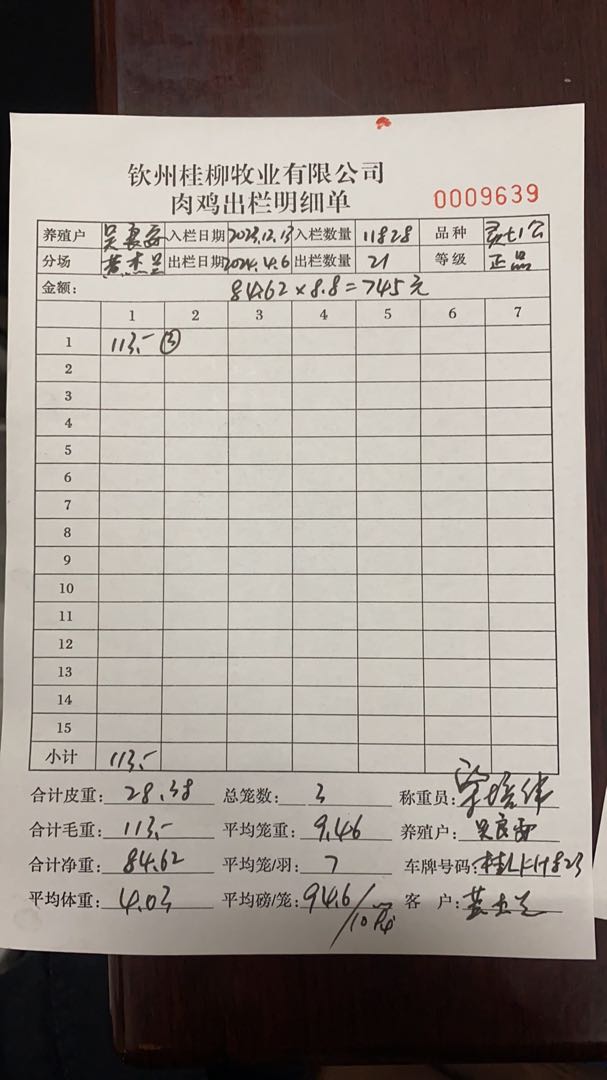 钦州桂柳牧业有限公司
肉鸡出栏明细单
0009639
养殖户 吴良 入栏日期 2023.12.13 入栏数量 11828 品种
分场 黄杰 出栏日期 2024.4.6 出栏数量 21 等级 正品
金额: 84.62×8.8=745元
1 2 3 4 5 6 7
1 113.- ③
2
3
4
5
6
7
8
9
10
11
12
13
14
15
小计 113.-
合计皮重: 28.38 总笼数: 3 称重员:
合计毛重: 113.- 平均笼重: 9.46 养殖户: 吴良
合计净重: 84.62 平均笼/羽: 7 车牌号码:
平均体重: 4.03 平均磅/笼: 94.6/10笼 客 户: